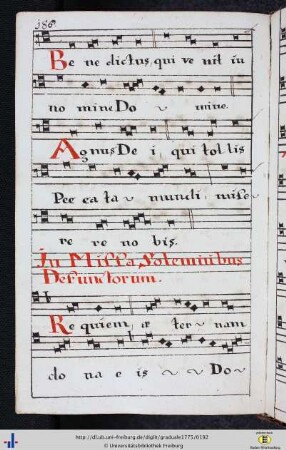 186
Be ne dictus, qui ve nit in
no mine Do ~ mine.
Agnus De i, qui tol lis
Pec ca ta ~ mundi mise~
re re no bis.
In Missa Solemnibus
Defunctorum.
Re quiem, æ ter ~ nam
do na e is ~ ~ Do~
http://dl.ub.uni-freiburg.de/diglit/graduale1775/0192
© Universitätsbibliothek Freiburg